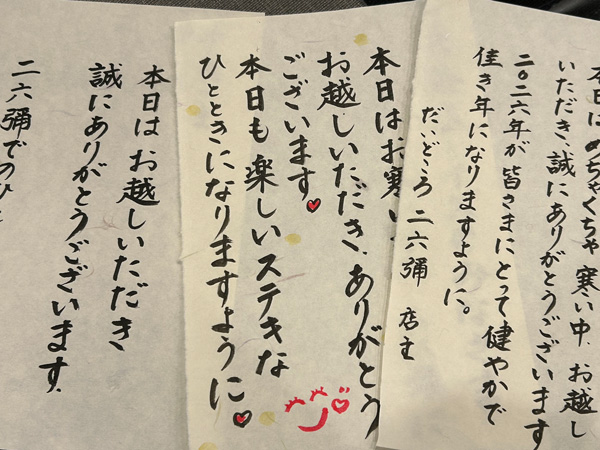 本日はめちゃくちゃ寒い中、お越し
いただき、誠にありがとうございます
二〇二六年が皆さまにとって健やかで
佳き年になりますように。
だいどころ 二六彌 店主
本日はお寒い
お越しいただき、ありがとう
ございます。
本日も楽しいステキな
ひとときになりますように
本日はお越しいただき
誠にありがとうございます。
二六彌でのひと